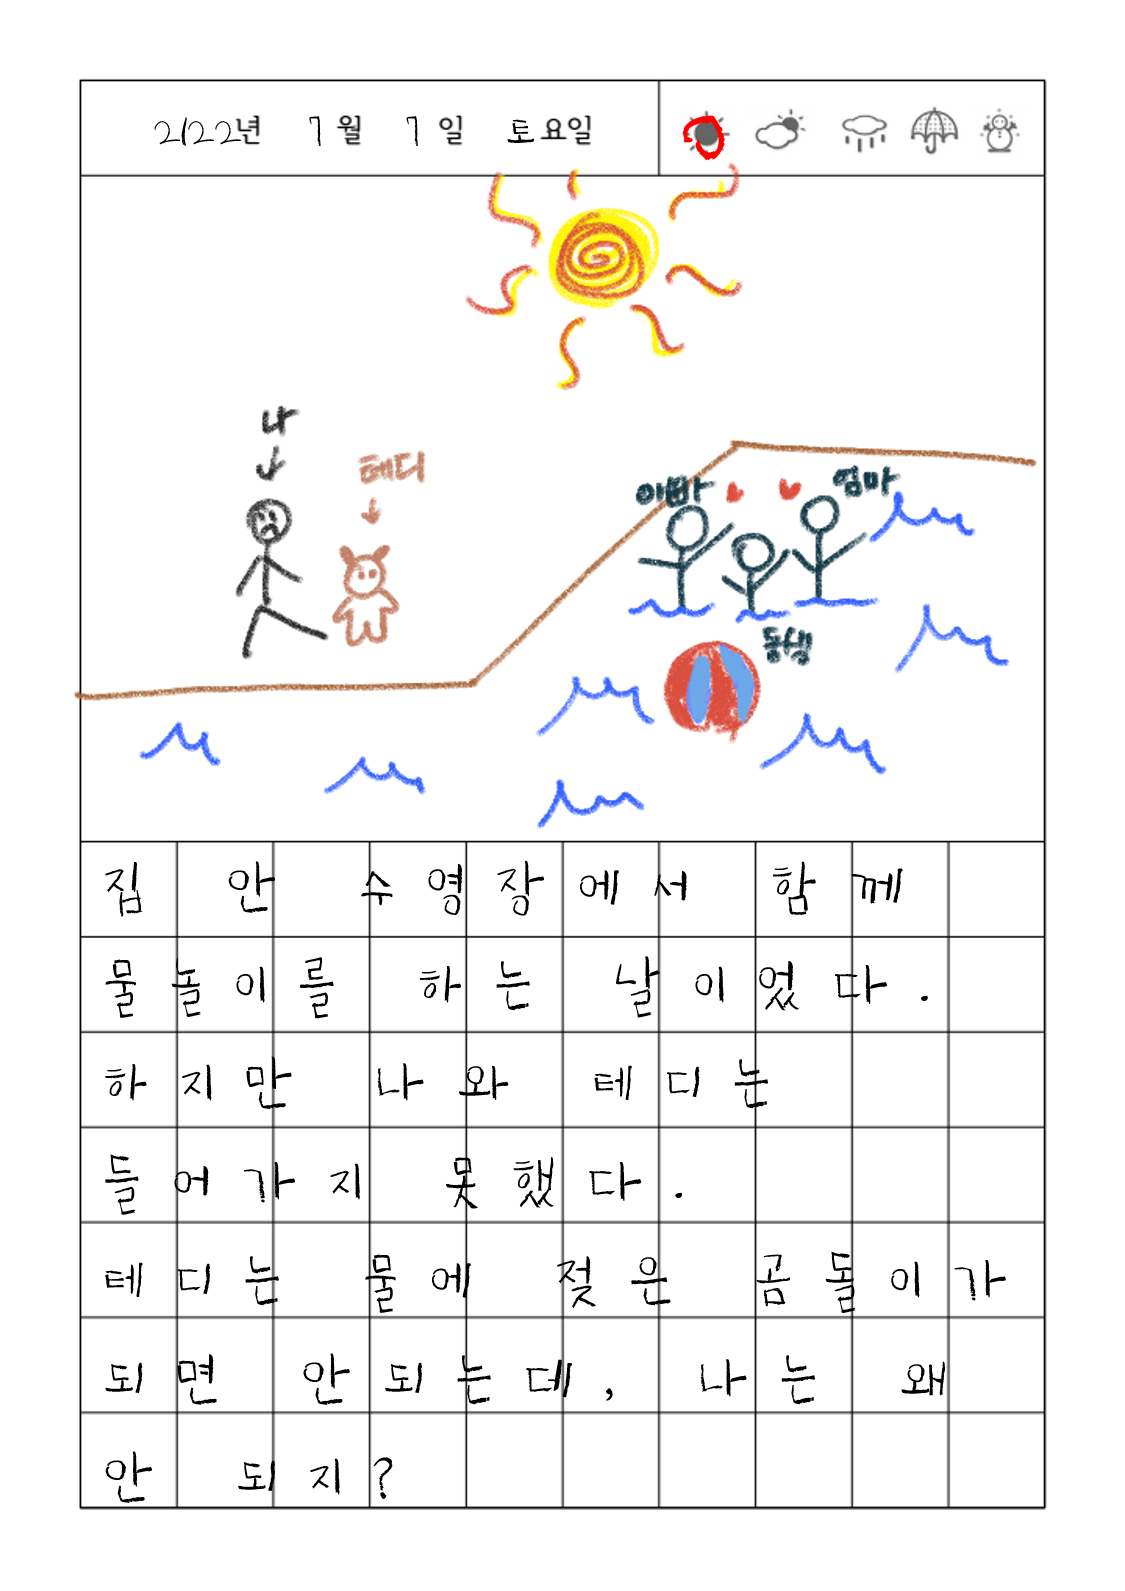 2122년 7월 7일 토요일
나
테디
아빠 엄마
동생
집 안 수영장에서 함께
물놀이를 하는 날이었다.
하지만 나와 테디는
들어가지 못했다.
테디는 물에 젖은 곰돌이가
되면 안 되는데, 나는 왜
안 되지?